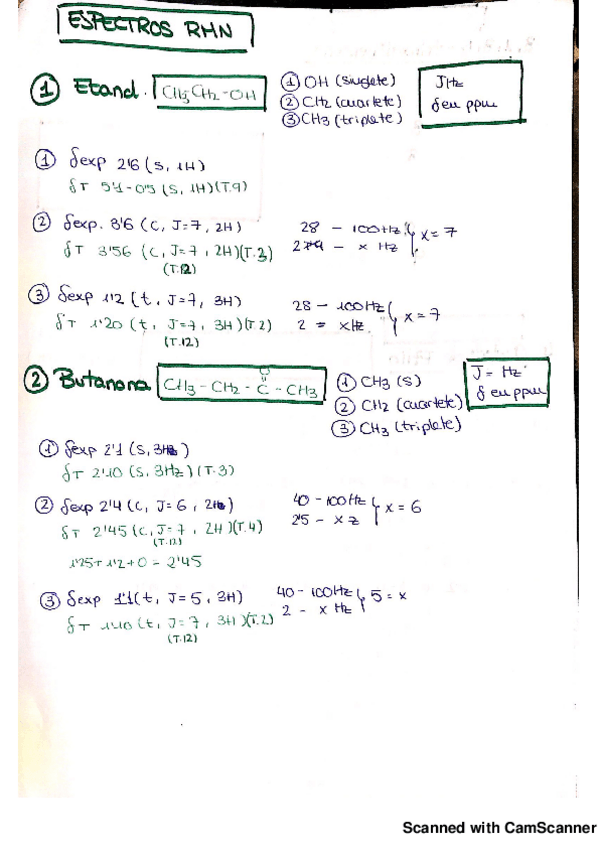 ESPECTROS RMN
① Etanol. CH3CH2-OH
① OH (singlete)
② CH2 (cuartete)
③ CH3 (triplete)
J Hz
δ en ppm
① δexp 2'6 (s, 1H)
δT 5'1-0'5 (s, 1H) (T.9)
② δexp. 3'6 (c, J=7, 2H)
δT 3'56 (c, J=7, 2H)(T.3)
(T.12)
28 - 100Hz
x Hz
x = 7
③ δexp 1'2 (t, J=7, 3H)
δT 1'20 (t, J=7, 3H)(T.2)
(T.12)
28 - 100Hz
2 = xHz.
x = 7
② Butanona CH3-CH2-C-CH3
O
① CH3 (s)
② CH2 (cuartete)
③ CH3 (triplete)
J = Hz
δ en ppm
① δexp 2'1 (s, 3H)
δT 2'10 (s, 3Hz) (T.3)
② δexp 2'4 (c, J=6, 2H)
δT 2'45 (c, J=7, 2H)(T.4)
(T.12)
1'25+1'2+0 = 2'45
40 - 100Hz
2'5 - x z
x = 6
③ δexp 1'1 (t, J=5, 3H)
δT 1'10 (t, J=7, 3H)(T.2)
(T.12)
40 - 100Hz
2 - x Hz
5 = x
Scanned with CamScanner